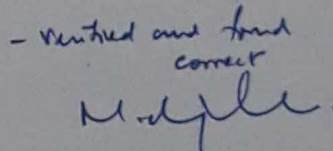 - Verified and found
correct